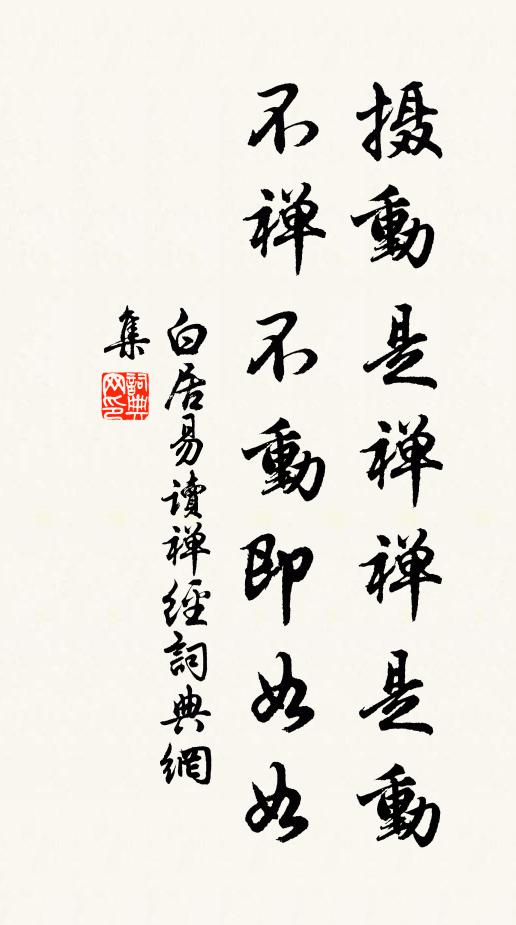 摄動是禅禅是動
不禅不動即如如
白居易讀禅經詞典網
集
詞典網印